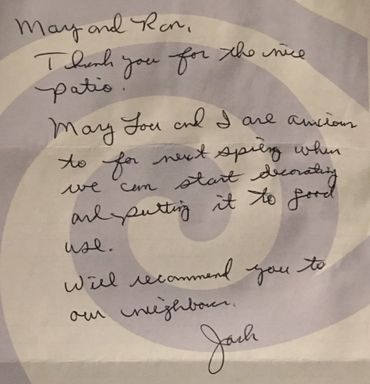 Mary and Ron,
Thank you for the nice
patio.
Mary Lou and I are anxious
to for next spring when
we can start decorating
and putting it to good
use.
Will recommend you to
our neighbours.
Jack